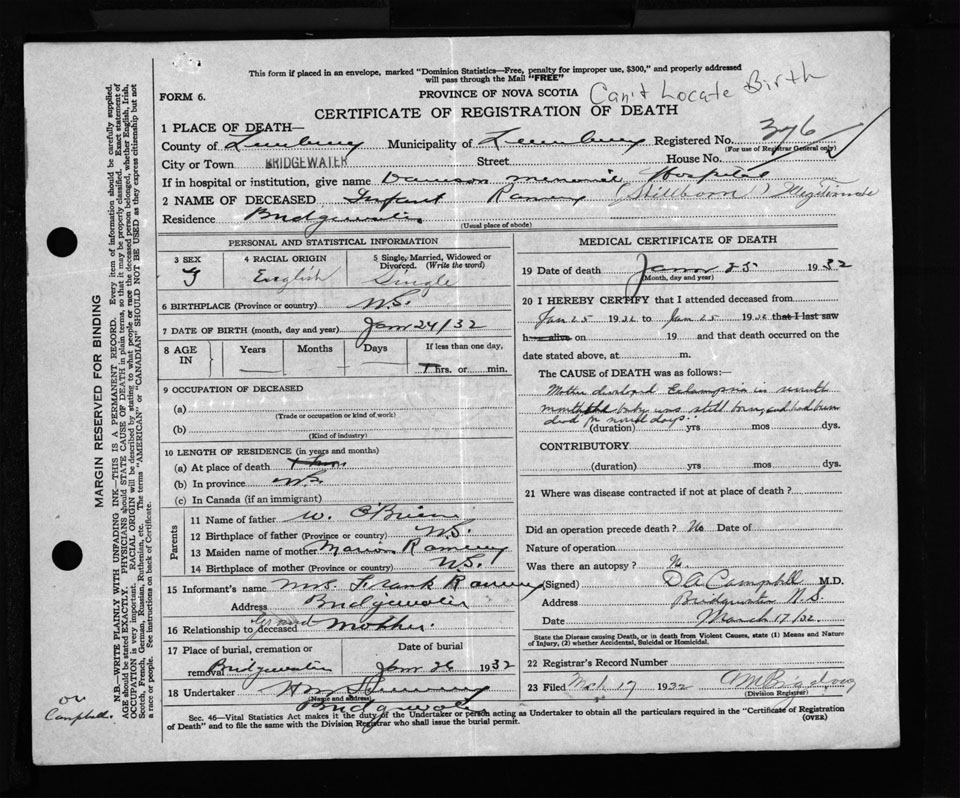 This form if placed in an envelope, marked "Dominion Statistics—Free, penalty for improper use, $300," and properly addressed
will pass through the Mail "FREE"
FORM 6.
PROVINCE OF NOVA SCOTIA
Can't Locate Birth
CERTIFICATE OF REGISTRATION OF DEATH
1 PLACE OF DEATH—
County of Lunenburg Municipality of Lunenburg Registered No. 376
(For use of Registrar General only)
City or Town BRIDGEWATER Street House No.
If in hospital or institution, give name Dawson Memorial Hospital
2 NAME OF DECEASED Infant Ramey (Stillborn) Illegitimate
Residence Bridgewater
(Usual place of abode)
PERSONAL AND STATISTICAL INFORMATION
3 SEX 4 RACIAL ORIGIN 5 Single, Married, Widowed or
Divorced. (Write the word)
English Single
6 BIRTHPLACE (Province or country) N.S.
7 DATE OF BIRTH (month, day and year) Jan 24/32
8 AGE IN Years Months Days If less than one day,
hrs. or min.
9 OCCUPATION OF DECEASED
(a)
(Trade or occupation or kind of work)
(b)
(Kind of industry)
10 LENGTH OF RESIDENCE (in years and months)
(a) At place of death
(b) In province
(c) In Canada (if an immigrant)
Parents
11 Name of father W. O'Brien
12 Birthplace of father (Province or country) N.S.
13 Maiden name of mother Marion Ramey
14 Birthplace of mother (Province or country) N.S.
15 Informant's name Mrs. Frank Ramey
Address Bridgewater
16 Relationship to deceased Grand Mother.
17 Place of burial, cremation or Date of burial
removal Bridgewater Jan 26 1932
18 Undertaker
(Name and address)
Bridgewater
MEDICAL CERTIFICATE OF DEATH
19 Date of death Jan 25 1932
(Month, day and year)
20 I HEREBY CERTIFY that I attended deceased from
Jan 25 1932 to Jan 25 1932 that I last saw
h alive on 19 and that death occurred on the
date stated above, at m.
The CAUSE of DEATH was as follows:—
Mother developed Eclampsia in seventh
month baby was still born and had been
dead for several days
(duration) yrs mos dys.
CONTRIBUTORY
(duration) yrs mos dys.
21 Where was disease contracted if not at place of death?
Did an operation precede death? No Date of
Nature of operation
Was there an autopsy? No.
(Signed) D A Campbell M.D.
Address Bridgewater N.S.
Date March 17/32.
State the Disease causing Death, or in death from Violent Causes, state (1) Means and Nature
of Injury, (2) whether Accidental, Suicidal or Homicidal.
22 Registrar's Record Number
23 Filed Mch 17 1932
(Division Registrar)
Sec. 46—Vital Statistics Act makes it the duty of the Undertaker or person acting as Undertaker to obtain all the particulars required in the "Certificate of Registration
of Death" and to file the same with the Division Registrar who shall issue the burial permit. (OVER)
MARGIN RESERVED FOR BINDING
N.B.—WRITE PLAINLY WITH UNFADING INK—THIS IS A PERMANENT RECORD. Every item of information should be carefully supplied.
AGE should be stated EXACTLY. PHYSICIANS should STATE CAUSE OF DEATH in plain terms, so that it may be properly classified. Exact statement of
OCCUPATION is very important. RACIAL ORIGIN will be described by stating to what people or race the deceased person belonged, whether English, Irish,
Scotch, French, German, Russian, Ruthenian, etc. The terms "AMERICAN" or "CANADIAN" SHOULD NOT BE USED as they express citizenship but not
a race or people. See instructions on back of Certificate.
Campbell.